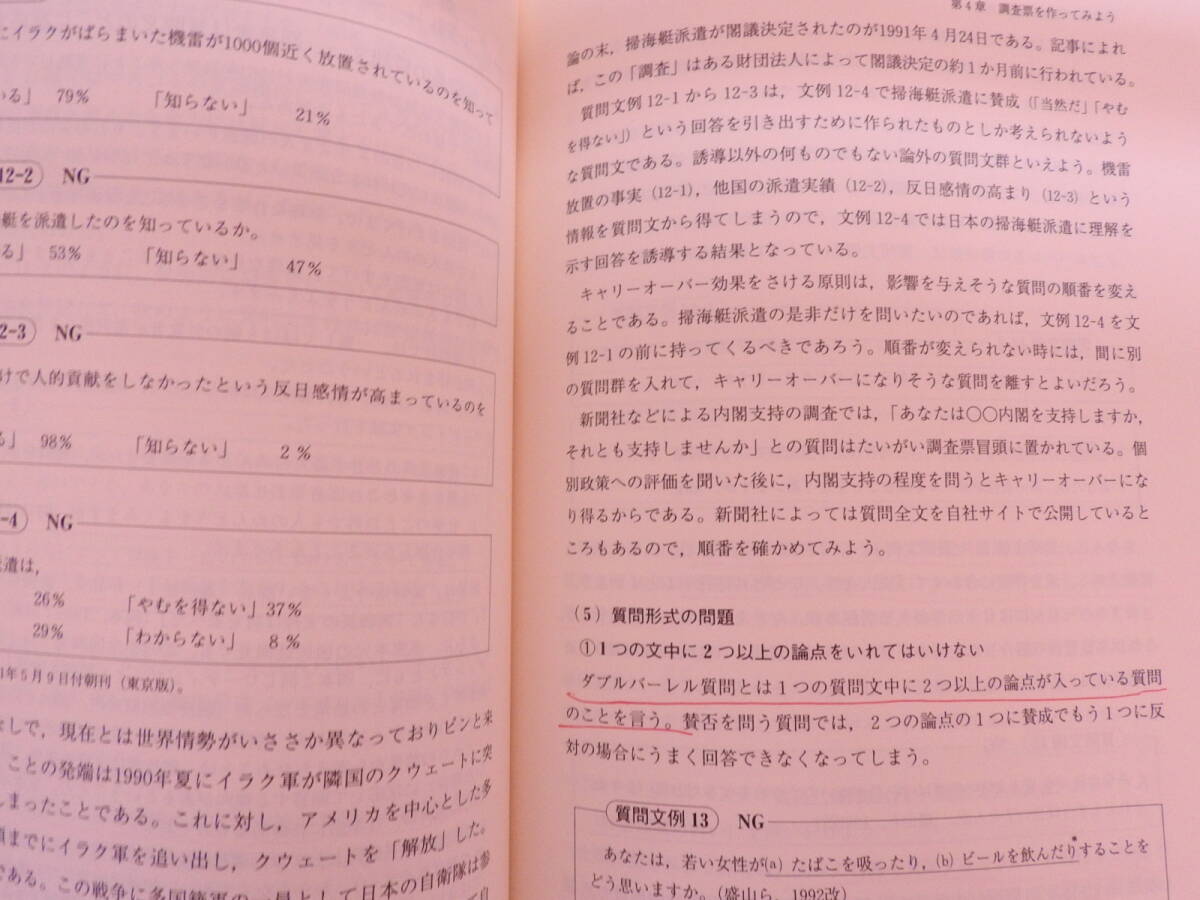 にイラクがばらまいた機雷が1000個近く放置されているのを知って
いる」 79% 「知らない」 21%
12-2 NG
艇を派遣したのを知っているか。
る」 53% 「知らない」 47%
2-3 NG
けで人的貢献をしなかったという反日感情が高まっているのを
る」 98% 「知らない」 2%
-4 NG
遣は，
26% 「やむを得ない」37%
29% 「わからない」 8%
1年5月9日付朝刊（東京版）。
なしで，現在とは世界情勢がいささか異なっておりピンと来
ことの発端は1990年夏にイラク軍が隣国のクウェートに突
しまったことである。これに対し，アメリカを中心とした多
頃までにイラク軍を追い出し，クウェートを「解放」した。
である。この戦争に多国籍軍の一員として日本の自衛隊は参
第4章 調査票を作ってみよう
論の末，掃海艇派遣が閣議決定されたのが1991年4月24日である。記事によれ
ば，この「調査」はある財団法人によって閣議決定の約1か月前に行われている。
質問文例12-1から12-3は，文例12-4で掃海艇派遣に賛成（「当然だ」「やむ
を得ない」）という回答を引き出すために作られたものとしか考えられないよう
な質問文である。誘導以外の何ものでもない論外の質問文群といえよう。機雷
放置の事実（12-1），他国の派遣実績（12-2），反日感情の高まり（12-3）という
情報を質問文から得てしまうので，文例12-4では日本の掃海艇派遣に理解を
示す回答を誘導する結果となっている。
キャリーオーバー効果をさける原則は，影響を与えそうな質問の順番を変え
ることである。掃海艇派遣の是非だけを問いたいのであれば，文例12-4を文
例12-1の前に持ってくるべきであろう。順番が変えられない時には，間に別
の質問群を入れて，キャリーオーバーになりそうな質問を離すとよいだろう。
新聞社などによる内閣支持の調査では，「あなたは〇〇内閣を支持しますか，
それとも支持しませんか」との質問はたいがい調査票冒頭に置かれている。個
別政策への評価を聞いた後に，内閣支持の程度を問うとキャリーオーバーにな
り得るからである。新聞社によっては質問全文を自社サイトで公開していると
ころもあるので，順番を確かめてみよう。
（5）質問形式の問題
①1つの文中に2つ以上の論点をいれてはいけない
ダブルバーレル質問とは1つの質問文中に2つ以上の論点が入っている質問
のことを言う。賛否を問う質問では，2つの論点の1つに賛成でもう1つに反
対の場合にうまく回答できなくなってしまう。
質問文例13 NG
あなたは，若い女性が(a) たばこを吸ったり，(b) ビールを飲んだりすることを
どう思いますか。（盛山ら，1992改）